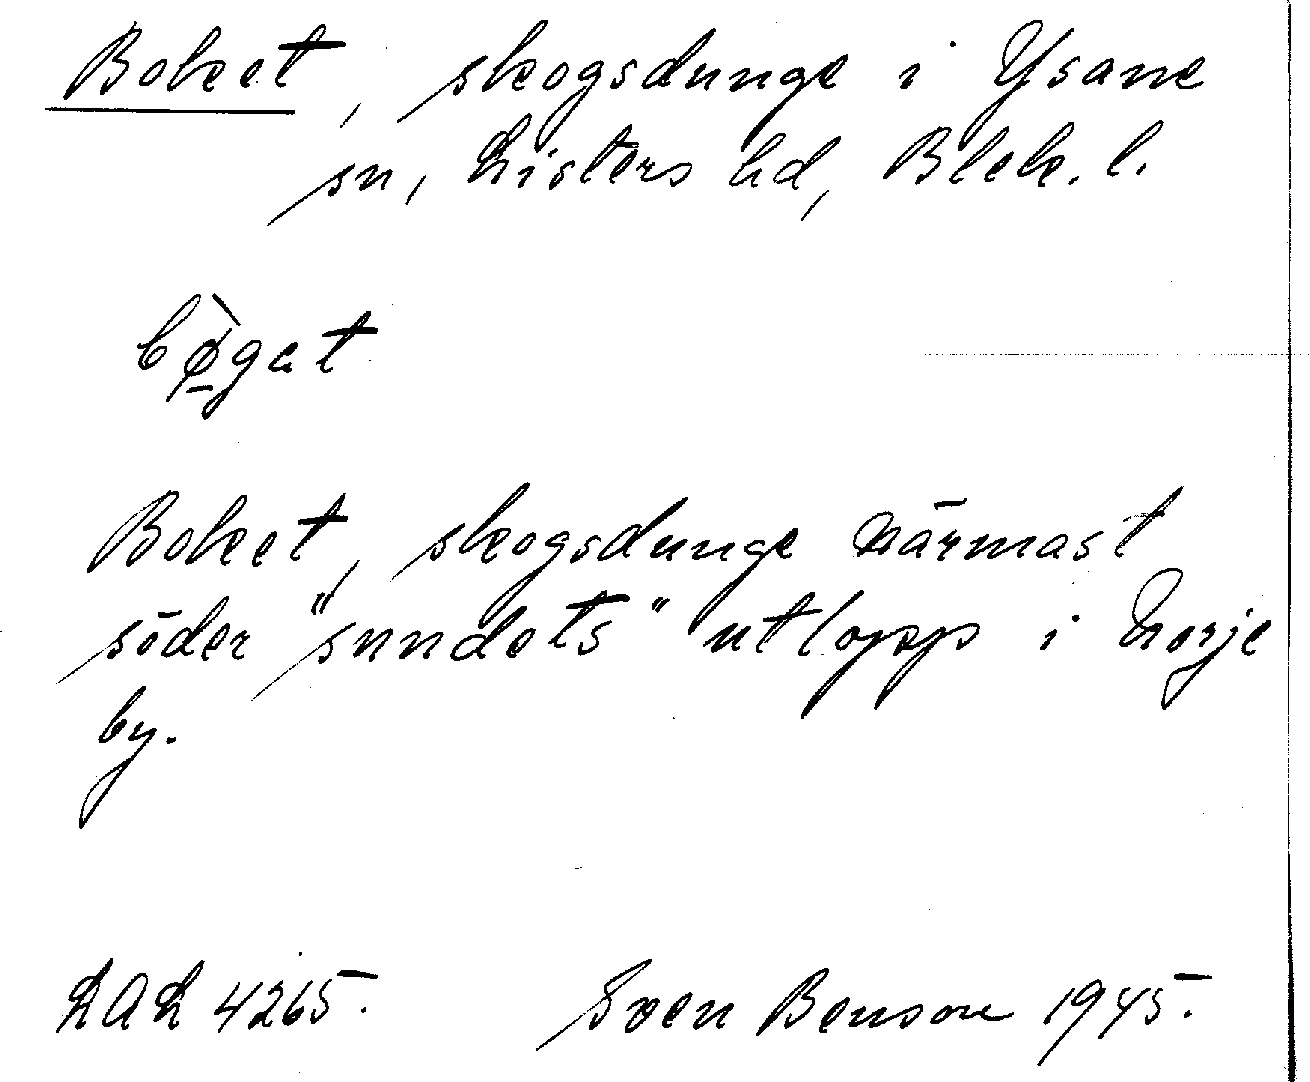 Boket, skogsdunge i Ysane
sn, Listers hd, Blek. l.
bø̠̀gat
Boket, skogsdunge närmast
söder "sundets" utlopp i Norje
by.
LAL 4265.
Sven Benson 1945.